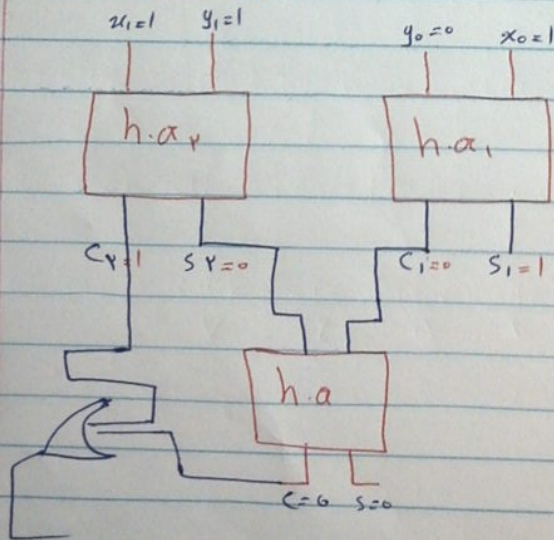 x₁=1 y₁=1 y₀=0 x₀=1
h.a۲ h.a₁
C۲=1 S۲=0 C₁=0 S₁=1
h.a
C=0 S=0